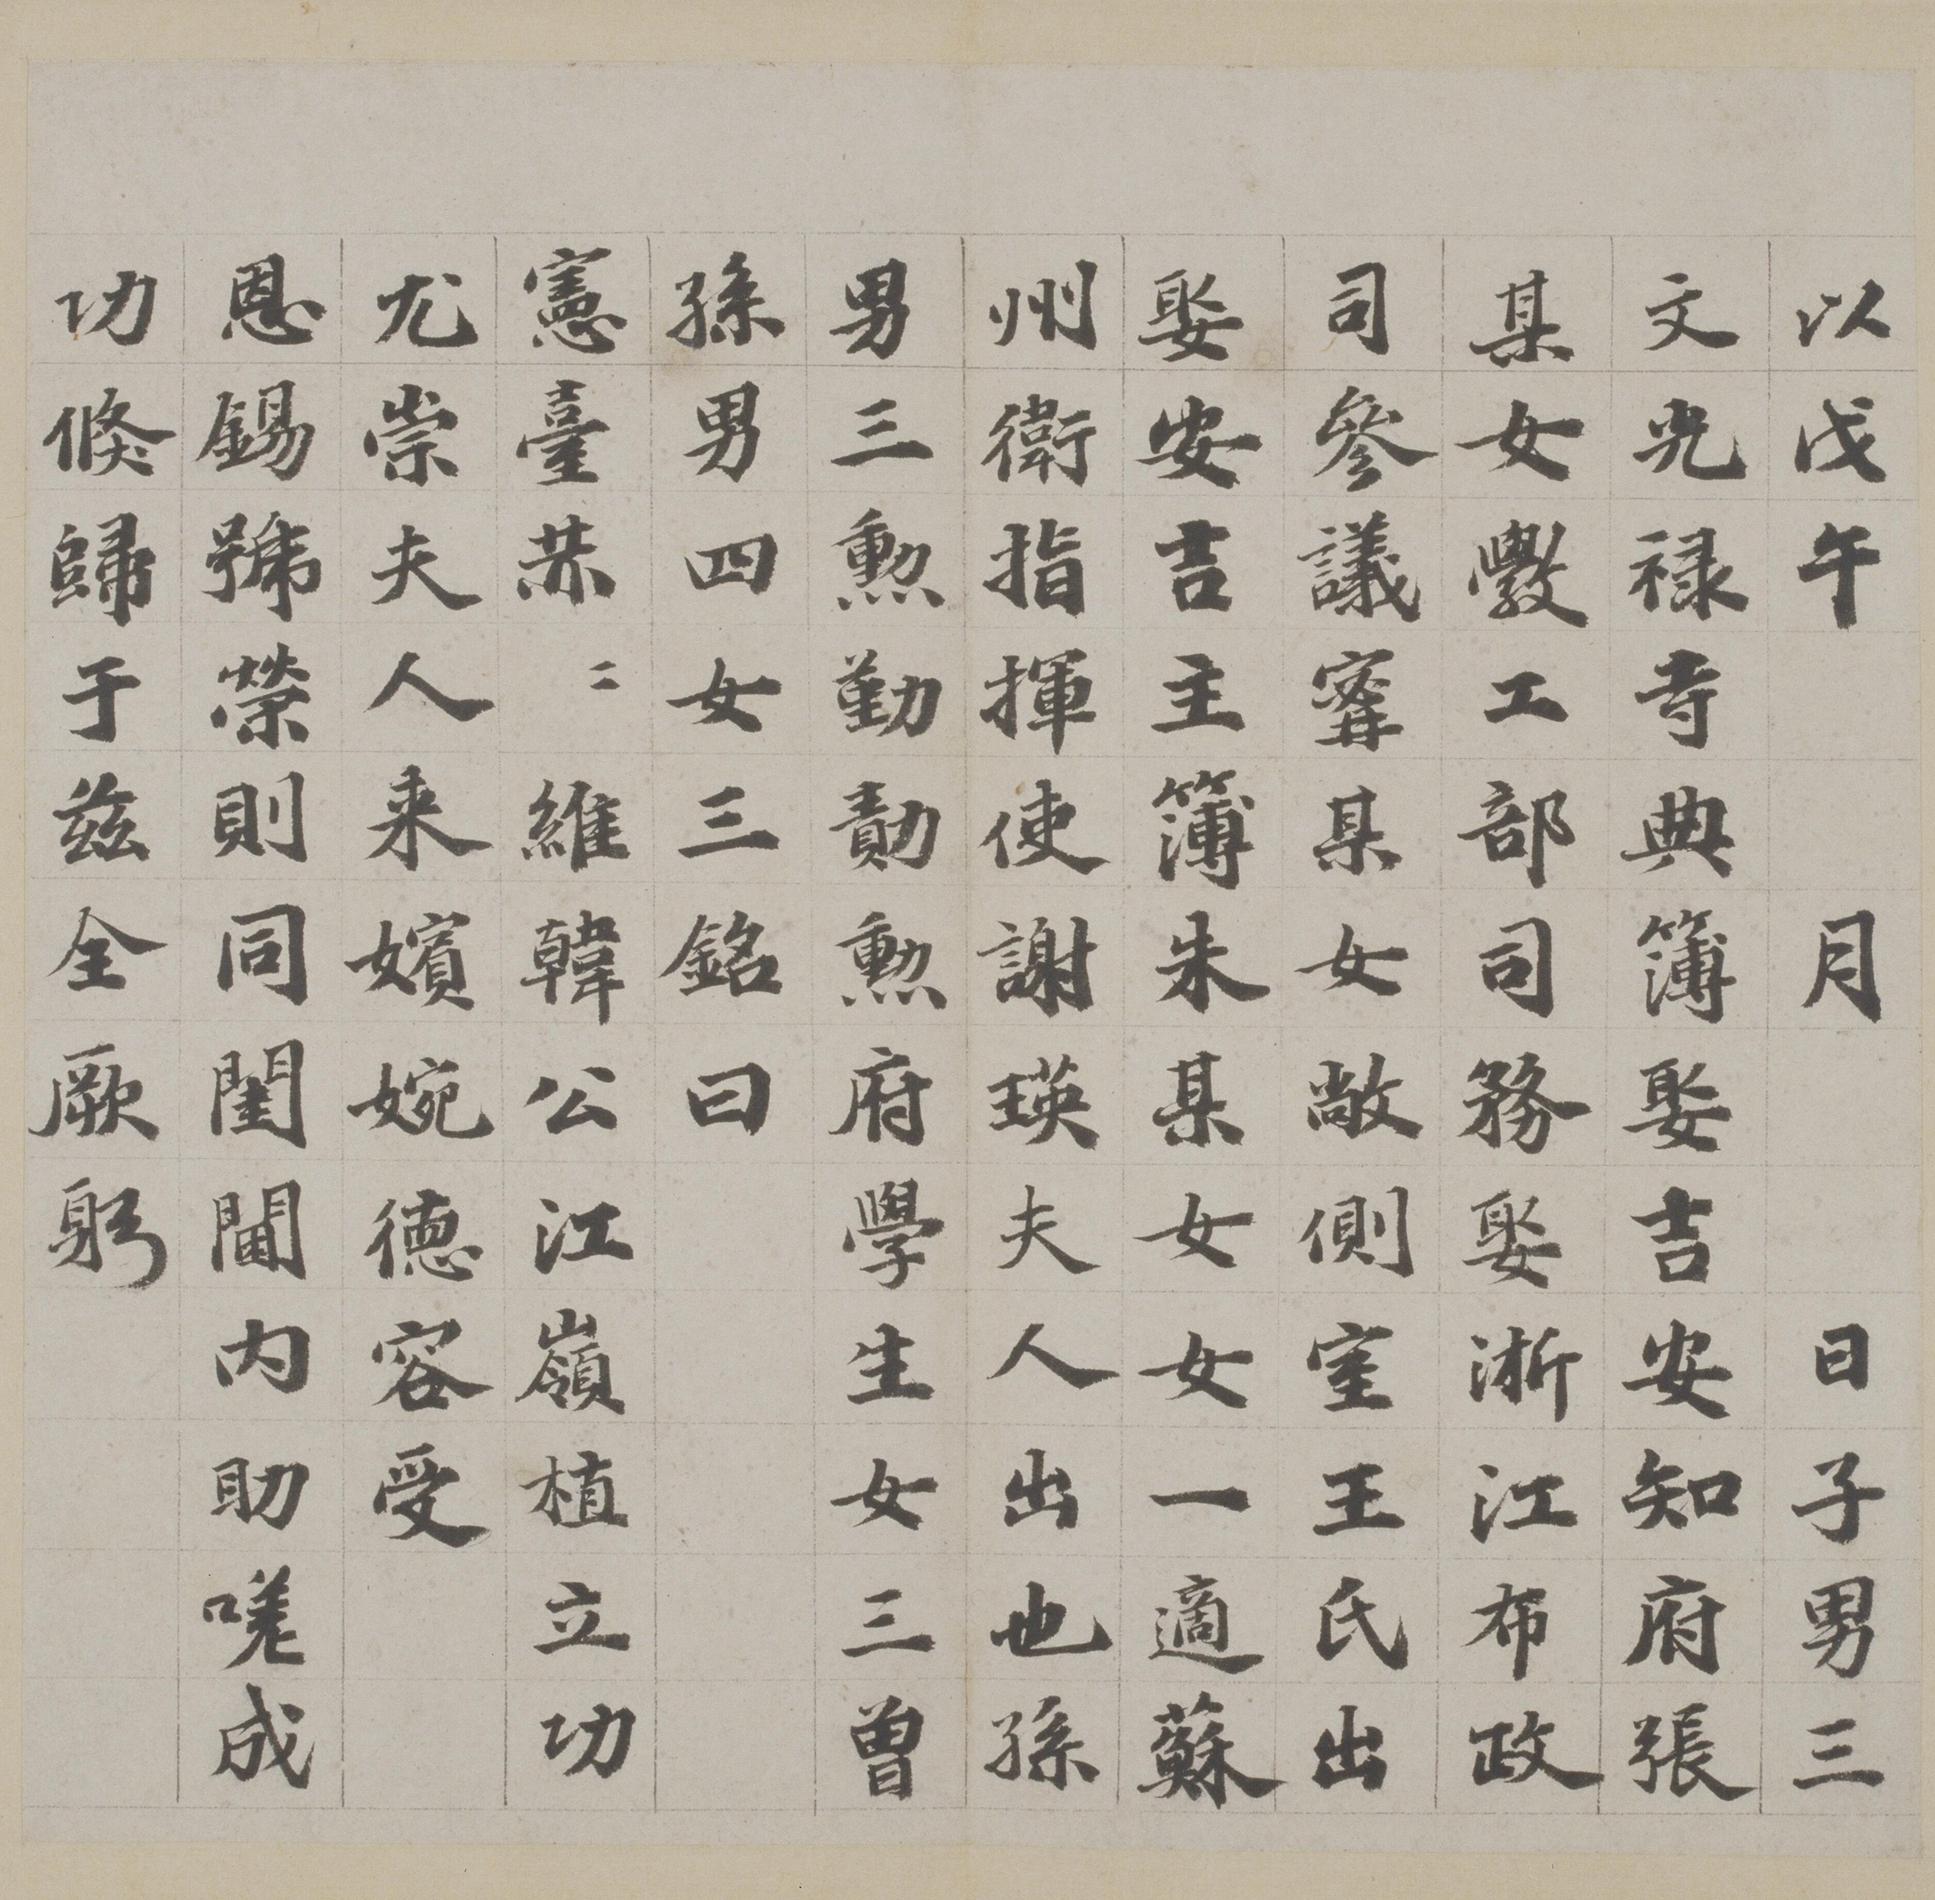 以戊午　月　日子男三
文光禄寺典簿娶吉安知府張
某女斆工部司務娶淅江布政
司參議甯某女敞側室王氏出
娶安吉主簿朱某女女一適蘇
州衛指揮使謝瑛夫人出也孫
男三勲勤勣勲府學生女三曾
孫男四女三銘曰
憲臺赫〻維韓公江嶺植立功
尤崇夫人来嬪婉德容受
恩錫號榮則同閨閫内助嗟成
功倏歸于兹全厥躬